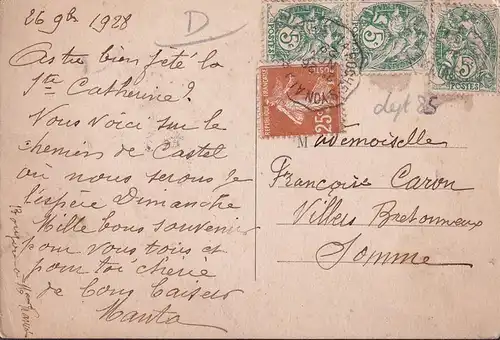 26 9bre 1928
D
As tu bien fêté la
Ste Catherine?
Vous voici sur le
chemin de Castel
où nous serons je
l'espère Dimanche
Mille bons souvenirs
pour vous tous et
pour toi chérie
de bons baisers
Bonjour à
5c
5c
5c
POSTES
25c
LYON A
dept 85
Mademoiselle
Françoise Caron
Villers Bretonneux
Somme